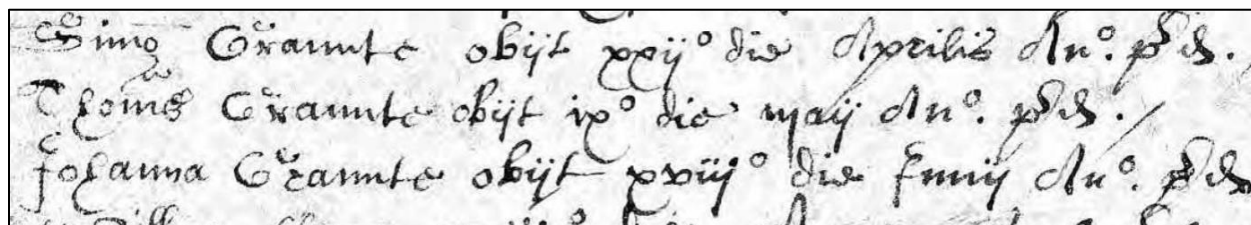 Simo Graunte obijt xxijº die Aprilis Anº. pd. /
Thomas Graunte obijt ixº die maij Anº. pd. /
Johanna Graunte obijt xviijº die Junij Anº. pd